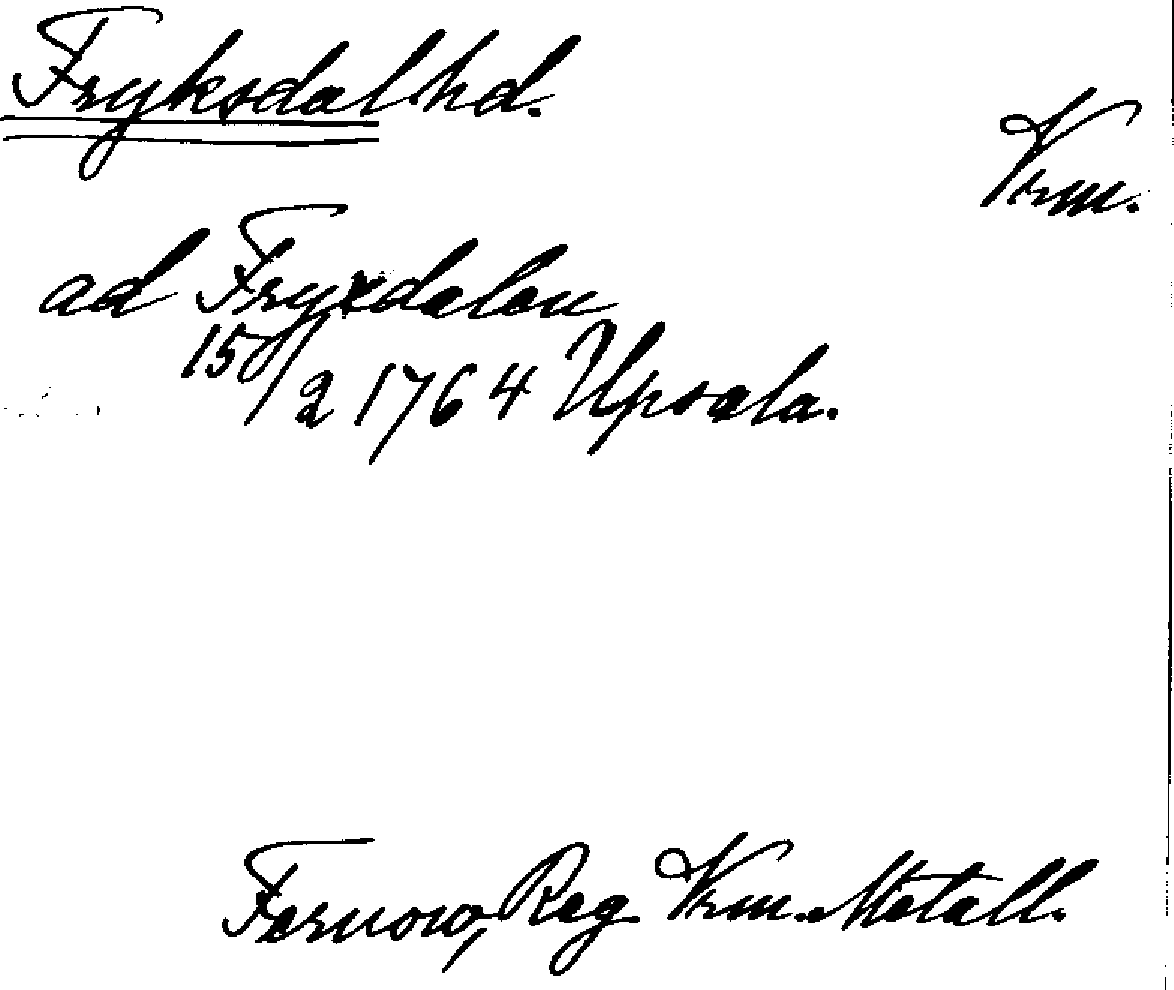 Fryksdal hd.
Vrm.
ad Fryxdalen
15/2 1764 Upsala.
Fernow, Reg. Vrm. Metall.